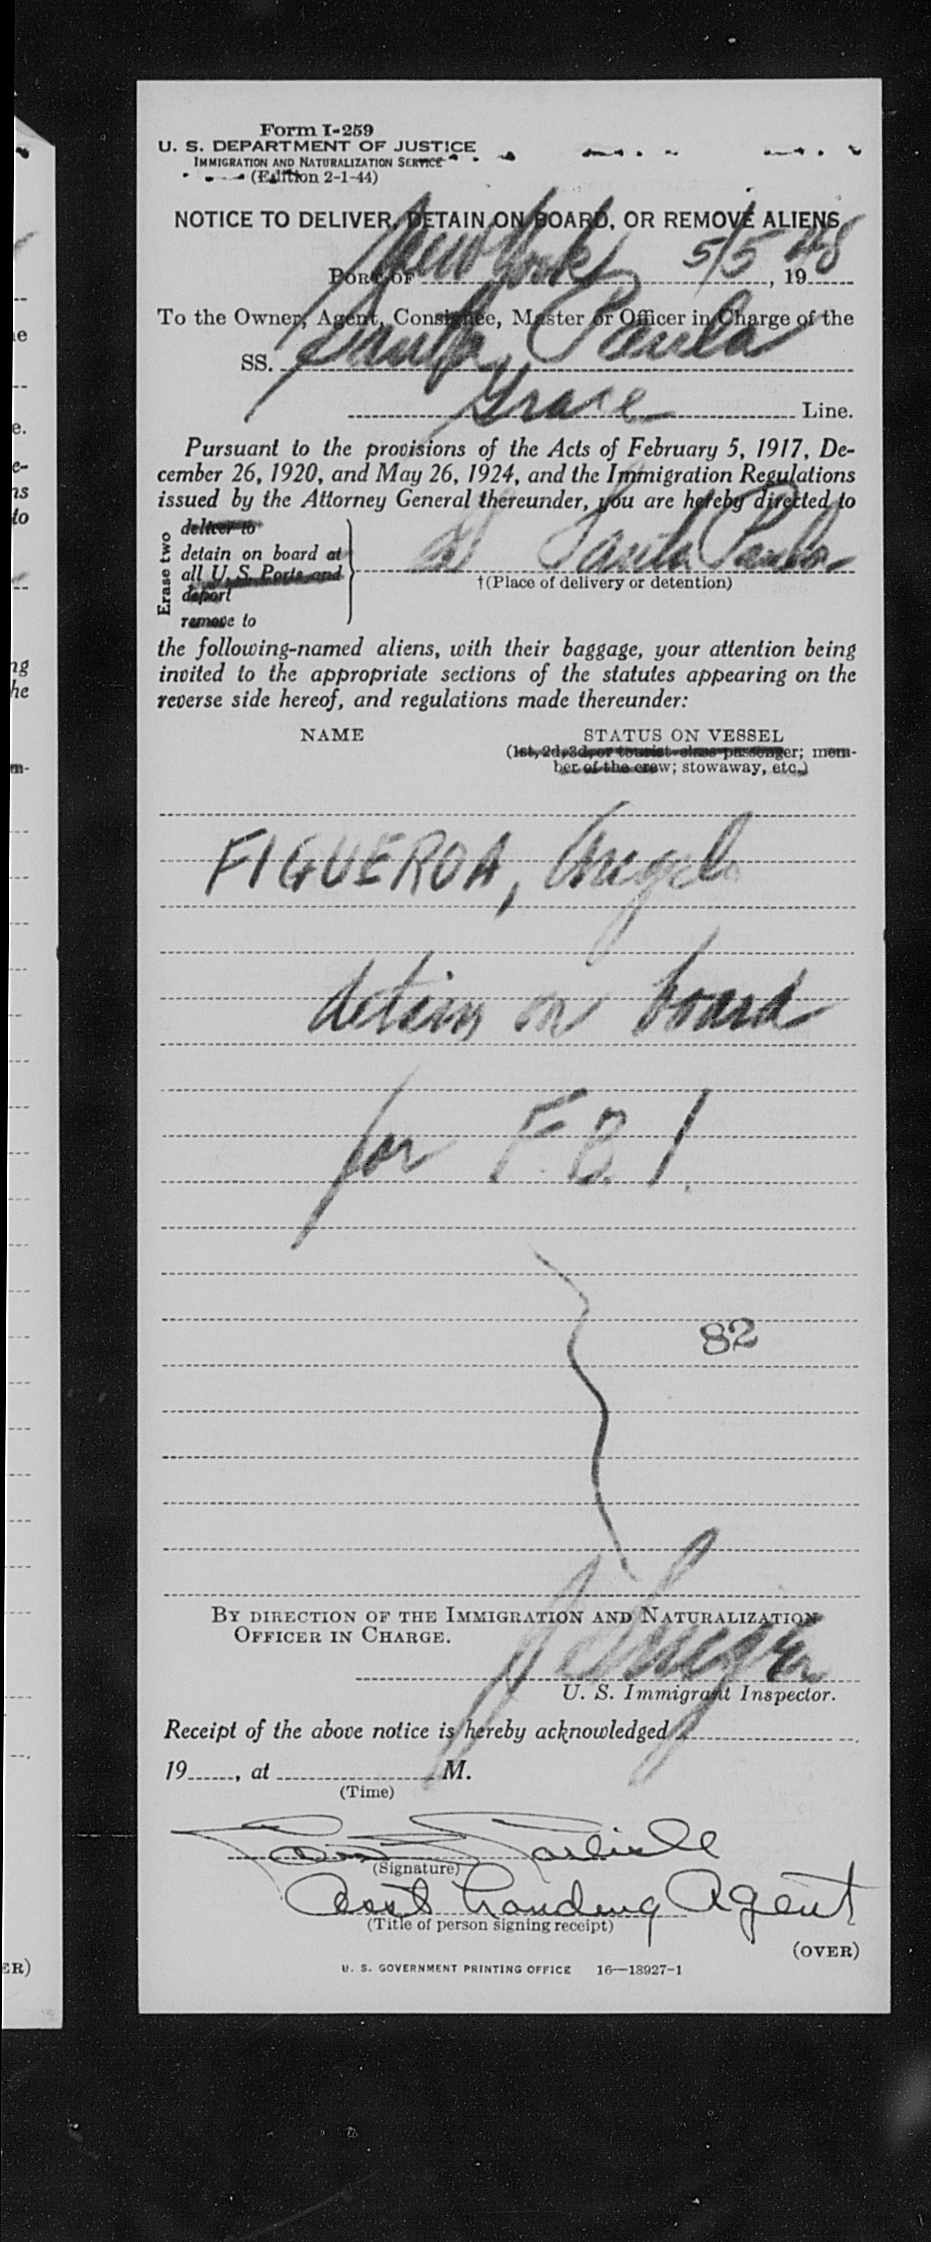 Form I-259
U. S. DEPARTMENT OF JUSTICE
IMMIGRATION AND NATURALIZATION SERVICE
(Edition 2-1-44)
NOTICE TO DELIVER, DETAIN ON BOARD, OR REMOVE ALIENS
PORT OF New York 5/5, 1948
To the Owner, Agent, Consignee, Master or Officer in Charge of the
SS. Santa Paula
Grace Line.
Pursuant to the provisions of the Acts of February 5, 1917, De-
cember 26, 1920, and May 26, 1924, and the Immigration Regulations
issued by the Attorney General thereunder, you are hereby directed to
Erase two
deliver to
detain on board at
all U. S. Ports and
deport
remove to
SS Santa Paula
†(Place of delivery or detention)
the following-named aliens, with their baggage, your attention being
invited to the appropriate sections of the statutes appearing on the
reverse side hereof, and regulations made thereunder:
NAME STATUS ON VESSEL
(1st, 2d, 3d, or tourist-class passenger; mem-
ber of the crew; stowaway, etc.)
FIGUEROA, Angel
detain on board
for F.B.I.
82
BY DIRECTION OF THE IMMIGRATION AND NATURALIZATION
OFFICER IN CHARGE.
U. S. Immigrant Inspector.
Receipt of the above notice is hereby acknowledged
19, at M.
(Time)
Carlisle
(Signature)
Asst Landing Agent
(Title of person signing receipt)
(OVER)
U. S. GOVERNMENT PRINTING OFFICE 16—18927-1